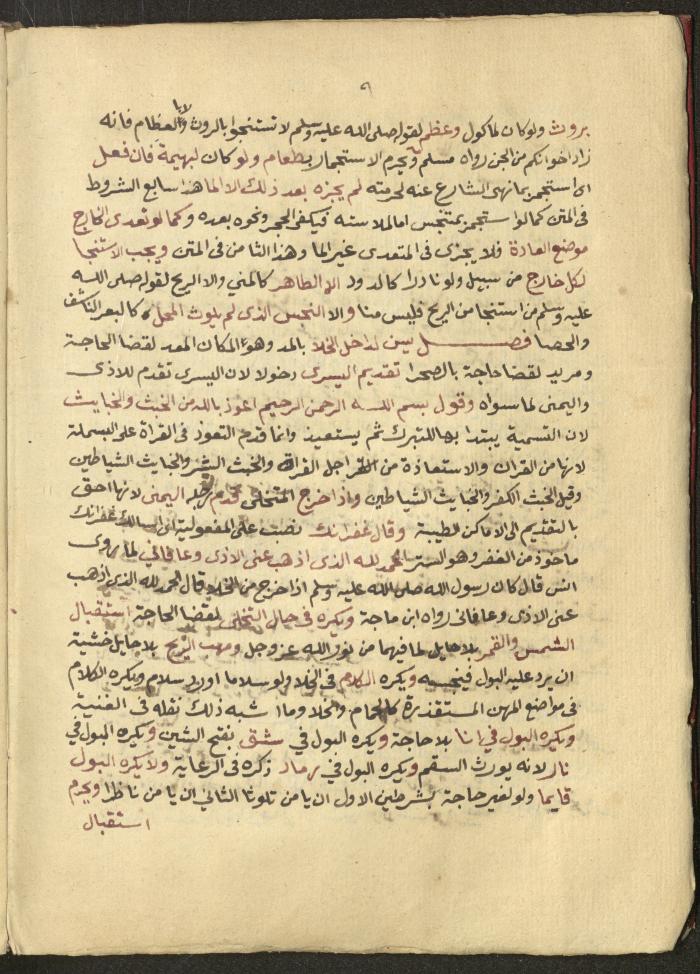 ٩
بروث ولو كان لماكول وعظم لقوله صلى الله عليه وسلم لا تستنجوا بالروث ولا بالعظام فانه
زاد اخوانكم من الجن رواه مسلم ويحرم الاستجمار بطعام ولو كان لبهيمة فان فعل
اى استجمر بما نهى الشارع عنه لحرمته لم يجزه بعد ذلك الا الما هذا سابع الشروط
فى المتن كما لو استجمر بمتنجس اما لملاسته فيكفى الحجر ونحوه بعده وكما لو تعدى الخارج
موضع العادة فلا يجزى فى المتعدى غير الما وهذا الثامن فى المتن ويجب الاستنجا
لكل خارج من سبيل ولو نادرا كالدود الا الطاهر كالمني والا الريح لقوله صلى الله
عليه وسلم من استنجا من الريح فليس منا والا النجس الذى لم يلوث المحل كالبعر الناشف
والحصا فصل يسن لداخل الخلا بالمد وهو المكان المعد لقضا الحاجة
ومريد لقضا حاجة بالصحرا تقديم اليسرى دخولا لان اليسرى تقدم للاذى
واليمنى لما سواه وقول بسم الله الرحمن الرحيم اعوذ بالله من الخبث والخبايث
لان التسمية يبتدا بها للتبرك ثم يستعيذ وانما قدم التعوذ فى القراة على البسملة
لانها من القران والاستعاذة من اجل القراة والخبث الشر والخبايث الشياطين
وقيل الخبث الكفر والخبايث الشياطين واذا خرج المتخلى قدم رجله اليمنى لانها احق
بالتقديم الى الاماكن الطيبة وقال غفرانك نصب على المفعولية اى اسالك غفرانك
ماخوذ من الغفر وهو الستر الحمد لله الذى اذهب عنى الاذى وعافاني لما روى
انس قال كان رسول الله صلى الله عليه وسلم اذا خرج من الخلا قال الحمد لله الذى اذهب
عنى الاذى وعافانى رواه ابن ماجة ويكره فى حال التخلى لقضا الحاجة استقبال
الشمس والقمر بلا حايل لما فيهما من نور الله عز وجل ومهب الريح بلا حايل خشية
ان يرد عليه البول فينجسه ويكره الكلام فى الخلا ولو سلاما او رد سلام ويكره الكلام
فى مواضع المهن المستقذرة كالحمام والخلا وما اشبه ذلك نقله فى الغنية
ويكره البول فى انا بلا حاجة ويكره البول في شق بفتح الشين ويكره البول في
نار لانه يورث السقم ويكره البول في رماد ذكره فى الرعاية ولا يكره البول
قايما ولو لغير حاجة بشرطين الاول ان يامن تلوثا الثاني ان يامن ناظرا ويحرم
استقبال